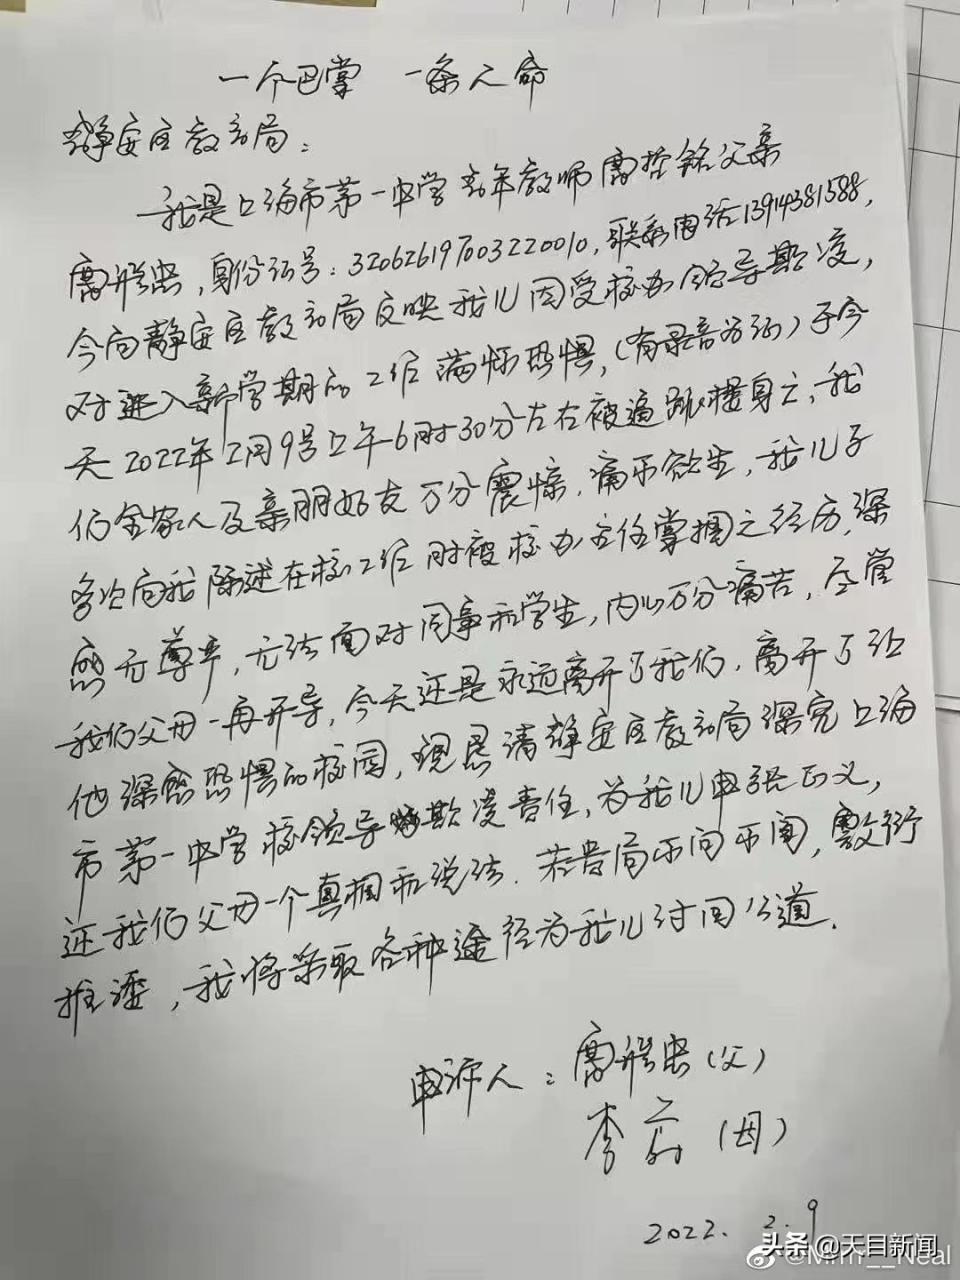 一个巴掌 一条人命
静安区教育局：
我是上海市第一中学青年教师 父亲
身份证号：320626197003220010，联系电话13914381588，
今向静安区教育局反映我儿因受校办领导欺凌，
对进入新学期的工作满怀恐惧，（有录音为证）于今
天2022年2月9号上午6时30分左右被逼跳楼身亡，我
们全家人及亲朋好友万分震惊，痛不欲生，我儿子
多次向我陈述在校工作时被校办主任掌掴之经历，深
感无尊严，无法面对同事和学生，内心万分痛苦，尽管
我们父母一再开导，今天还是永远离开了我们，离开了让
他深感恐惧的校园，现恳请静安区教育局深究上海
市第一中学校领导欺凌责任，为我儿申张正义，
还我们父母一个真相和说法．若贵局不问不闻，敷衍
推诿，我将采取各种途径为我儿讨回公道．
申诉人：（父）
李 （母）
2022. 2. 9
头条 @天目新闻